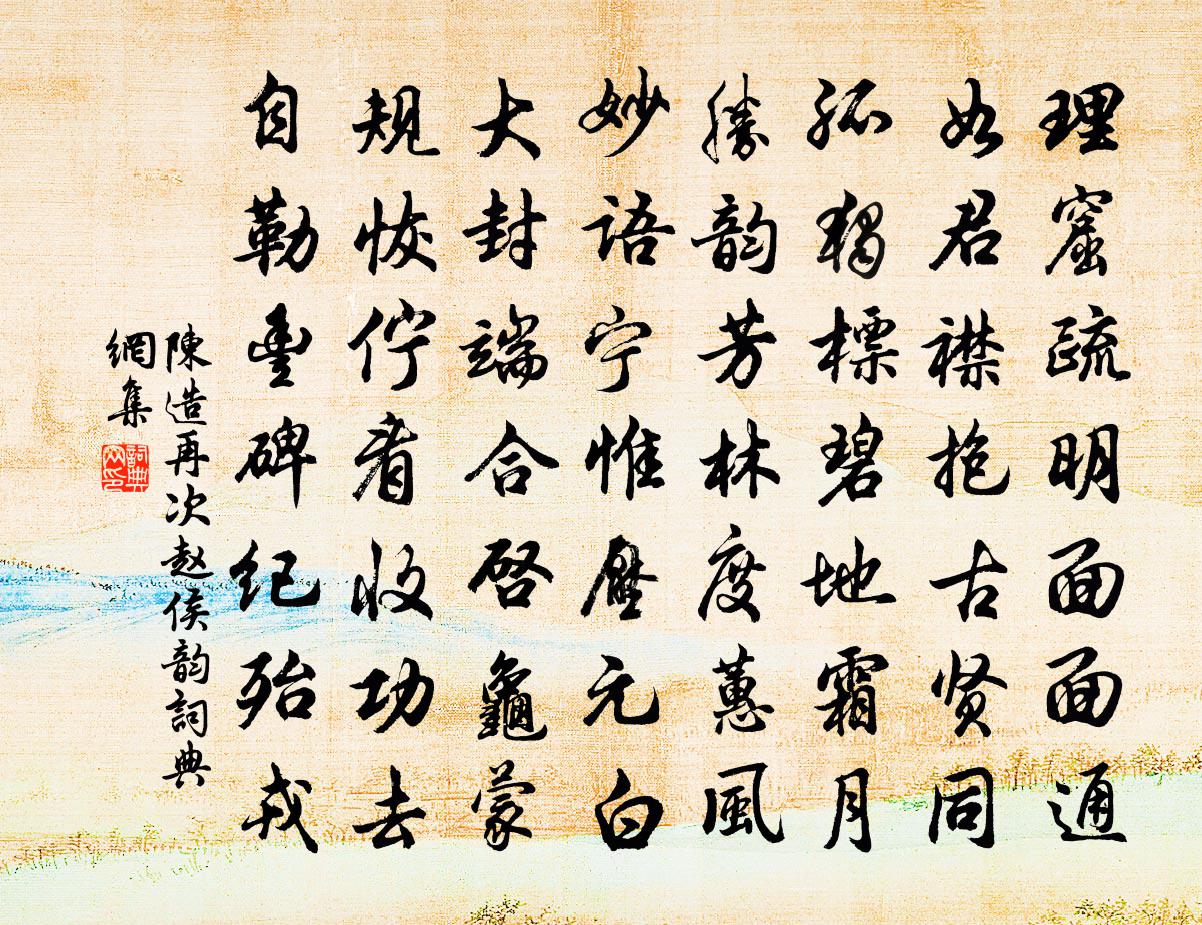 理窟疏明面面通
如君襟抱古贤同
孤独标碧地霜月
勝韵芳林度蕙風
妙语宁惟壓元白
大封端合启龜蒙
规恢佇看收功去
自勒豊碑纪殆戎
陳造再次赵侯韵詞典
網集
詞典